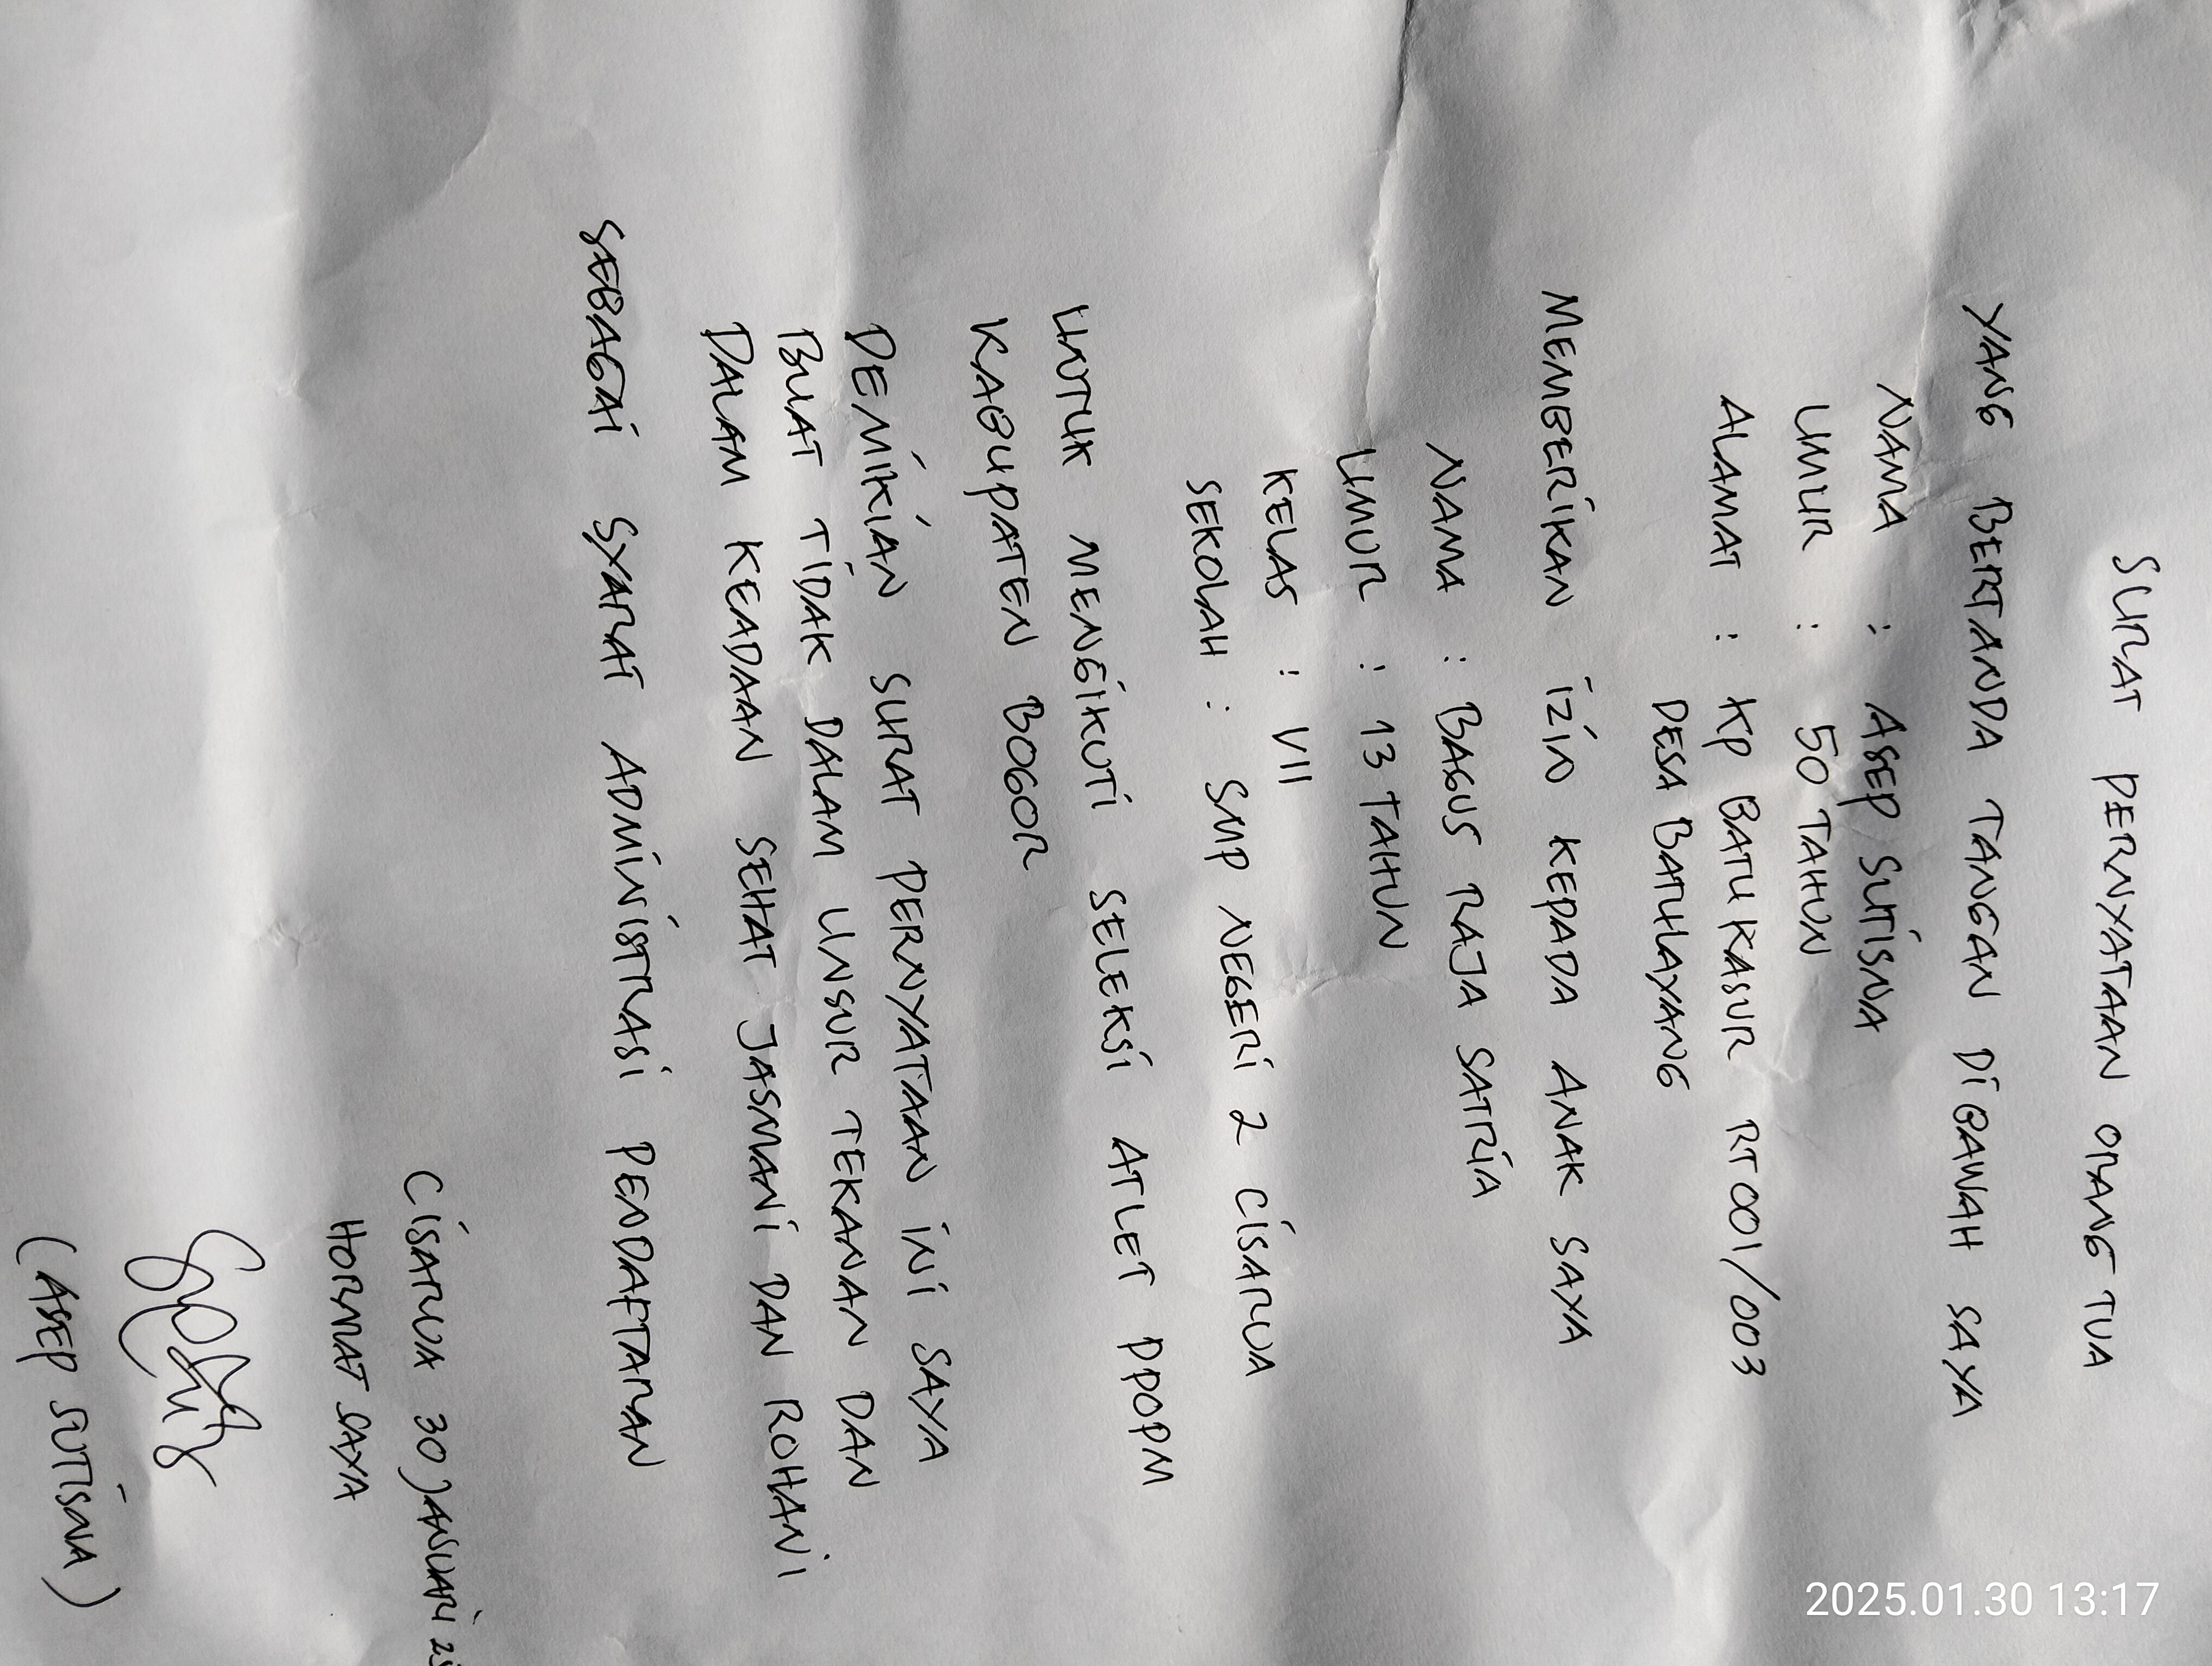 SURAT PERNYATAAN ORANG TUA
YANG BERTANDA TANGAN DI BAWAH SAYA
NAMA : ASEP SUTISNA
UMUR : 50 TAHUN
ALAMAT : KP BATU KASUR RT 001/003
DESA BATULAYANG
MEMBERIKAN IZIN KEPADA ANAK SAYA
NAMA : BAGUS RAJA SATRIA
UMUR : 13 TAHUN
KELAS : VII
SEKOLAH : SMP NEGERI 2 CISARUA
UNTUK MENGIKUTI SELEKSI ATLET PPOPM
KABUPATEN BOGOR
DEMIKIAN SURAT PERNYATAAN INI SAYA
BUAT TIDAK DALAM UNSUR TEKANAN DAN
DALAM KEADAAN SEHAT JASMANI DAN ROHANI
SEBAGAI SYARAT ADMINISTRASI PENDAFTARAN
CISARUA 30 JANUARI
HORMAT SAYA
(ASEP SUTISNA)
2025.01.30 13:17